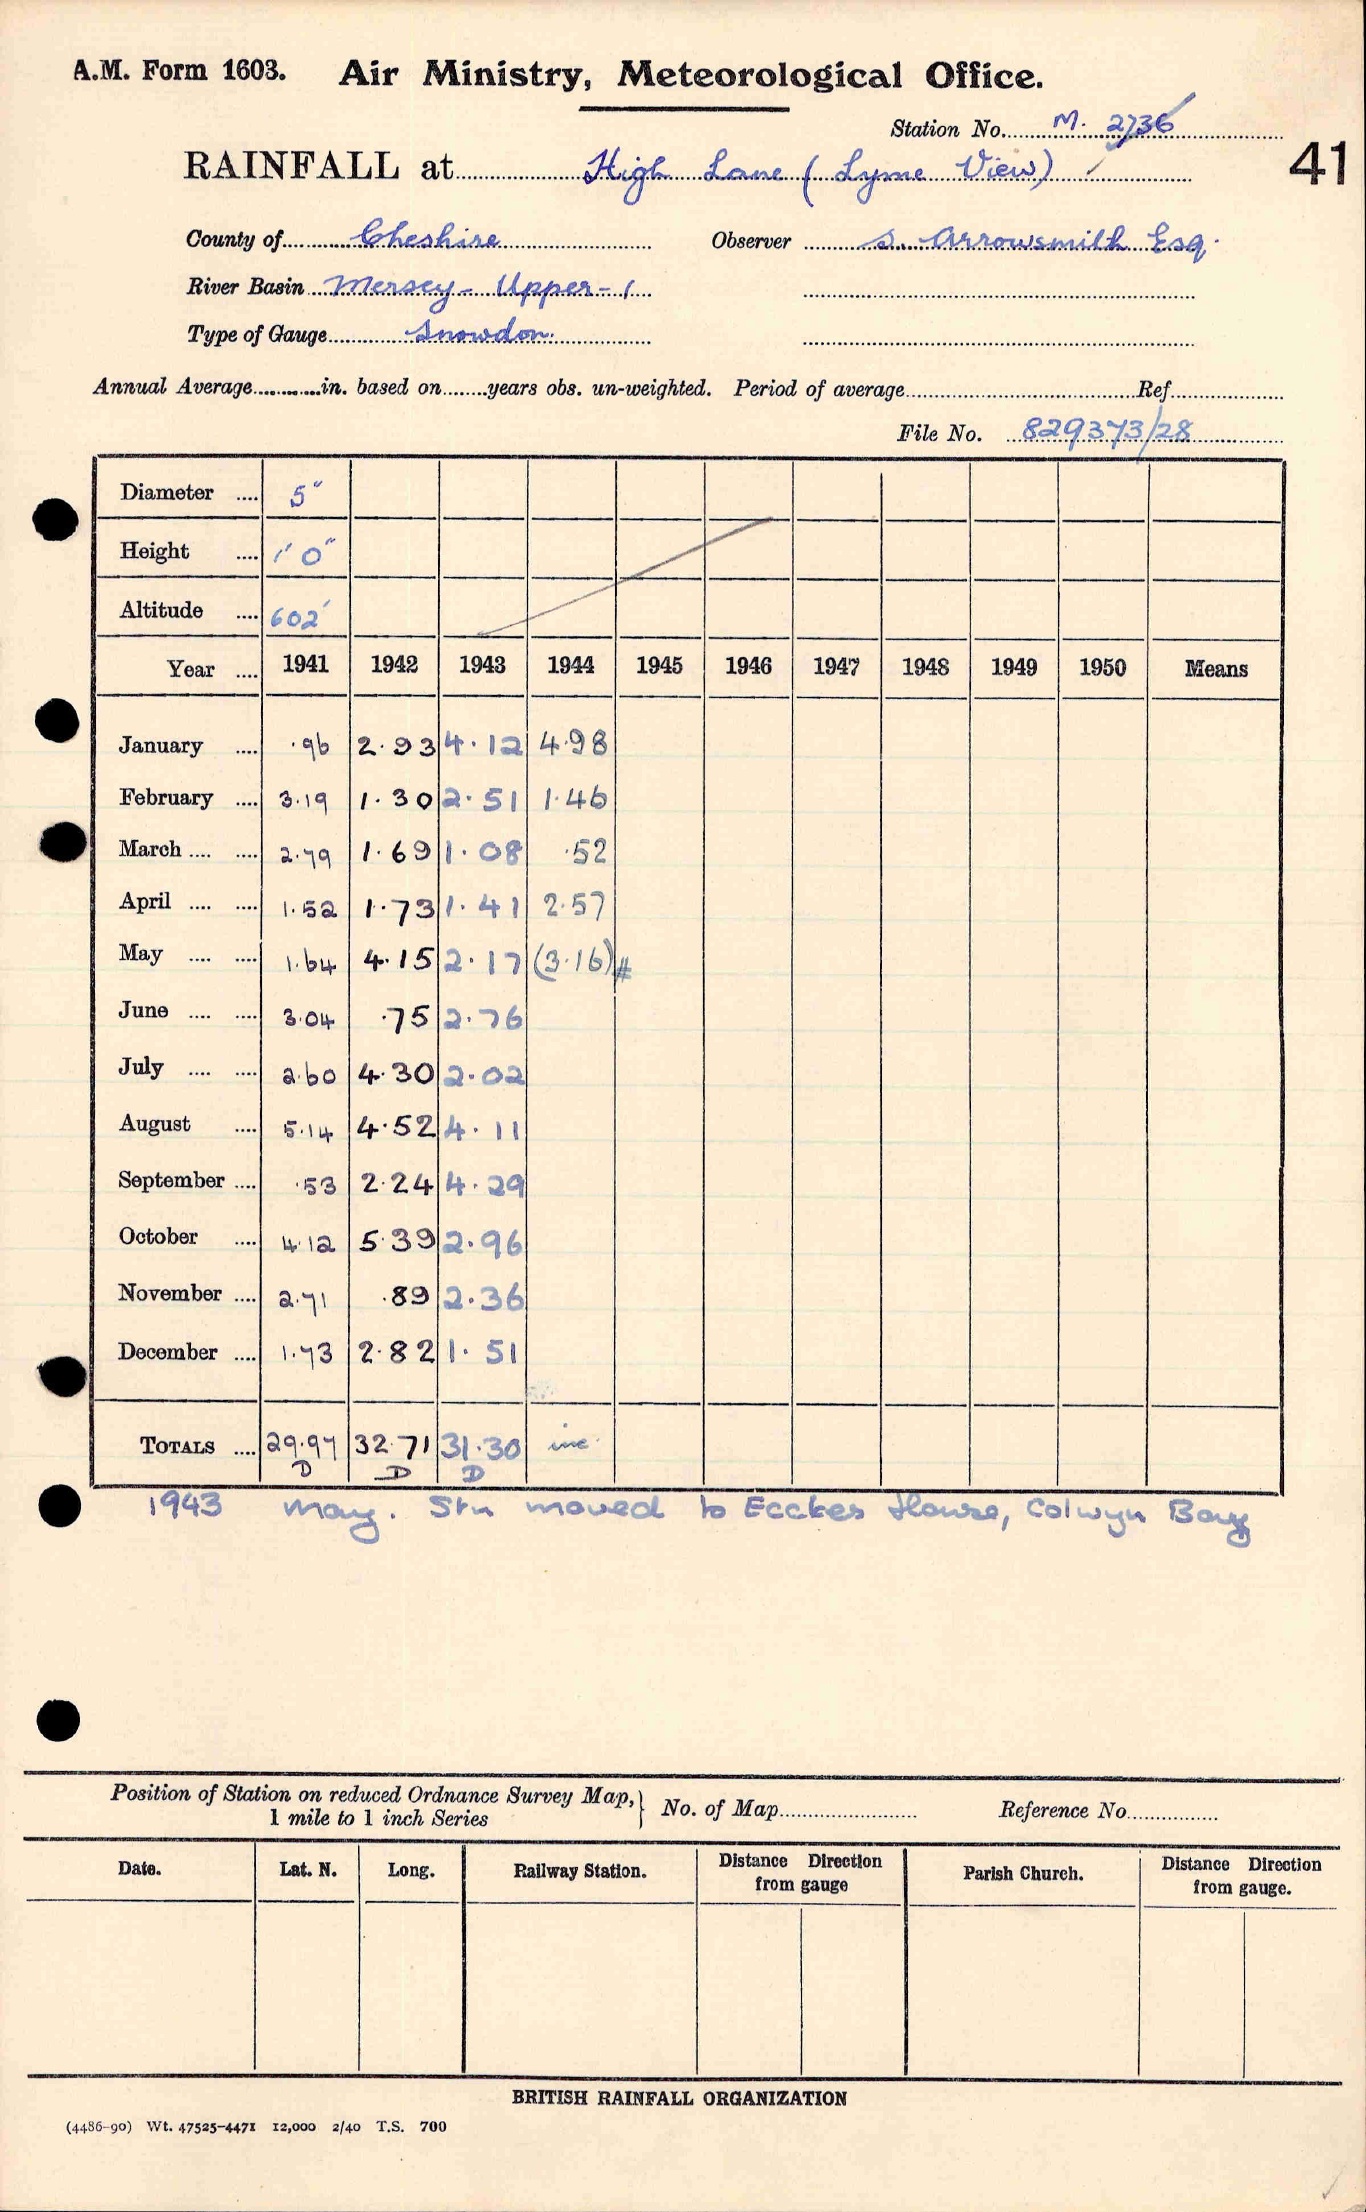 A.M. Form 1603. Air Ministry, Meteorological Office.
Station No. M. 2736
RAINFALL at High Lane (Lyme View)
41
County of Cheshire Observer S. Arrowsmith Esq.
River Basin Mersey - Upper - 1
Type of Gauge Snowdon.
Annual Average............in. based on........years obs. un-weighted. Period of average........Ref........
File No. 829373/28
Diameter .... 5"
Height .... 1' 0"
Altitude .... 602'
Year .... 1941 1942 1943 1944 1945 1946 1947 1948 1949 1950 Means
January .... .96 2.93 4.12 4.98
February .... 3.19 1.30 2.51 1.46
March .... .... 2.79 1.69 1.08 .52
April .... .... 1.52 1.73 1.41 2.57
May .... .... 1.64 4.15 2.17 (3.16)#
June .... .... 3.04 .75 2.76
July .... .... 2.60 4.30 2.02
August .... 5.14 4.52 4.11
September .... .53 2.24 4.29
October .... 4.12 5.39 2.96
November .... 2.71 .89 2.36
December .... 1.73 2.82 1.51
TOTALS .... 29.97 32.71 31.30 inc.
D D D
1943 May. Stn moved to Eccles House, Colwyn Bay
Position of Station on reduced Ordnance Survey Map, } No. of Map........ Reference No........
1 mile to 1 inch Series
Date. Lat. N. Long. Railway Station. Distance Direction Parish Church. Distance Direction
from gauge from gauge.
BRITISH RAINFALL ORGANIZATION
(4486-90) Wt. 47525-4471 12,000 2/40 T.S. 700